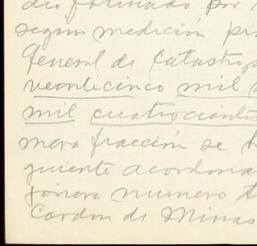 formado por
segun medición
General de Catastro,
veinticinco mil
mil cuatrocientos
mera fracción se h
guiente acordona
tonera numero
Cordon de Minas